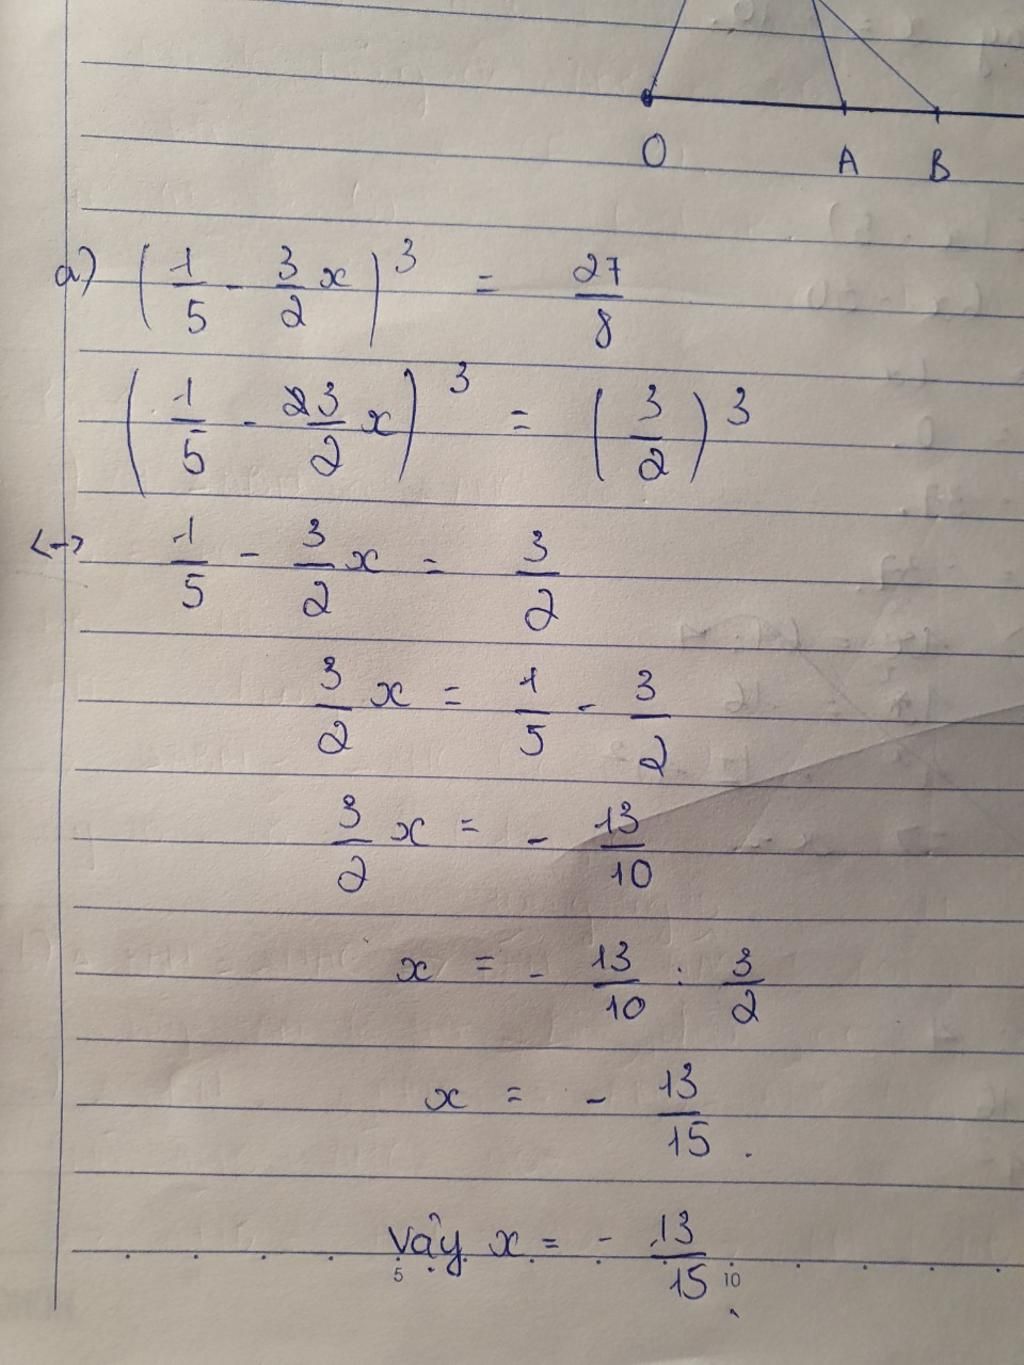 O A B
a) (1/5 - 3/2 x)^3 = 27/8
(1/5 - 3/2 x)^3 = (3/2)^3
<-> 1/5 - 3/2 x = 3/2
3/2 x = 1/5 - 3/2
3/2 x = - 13/10
x = - 13/10 : 3/2
x = - 13/15 .
Vậy x = - 13/15 .
5 10